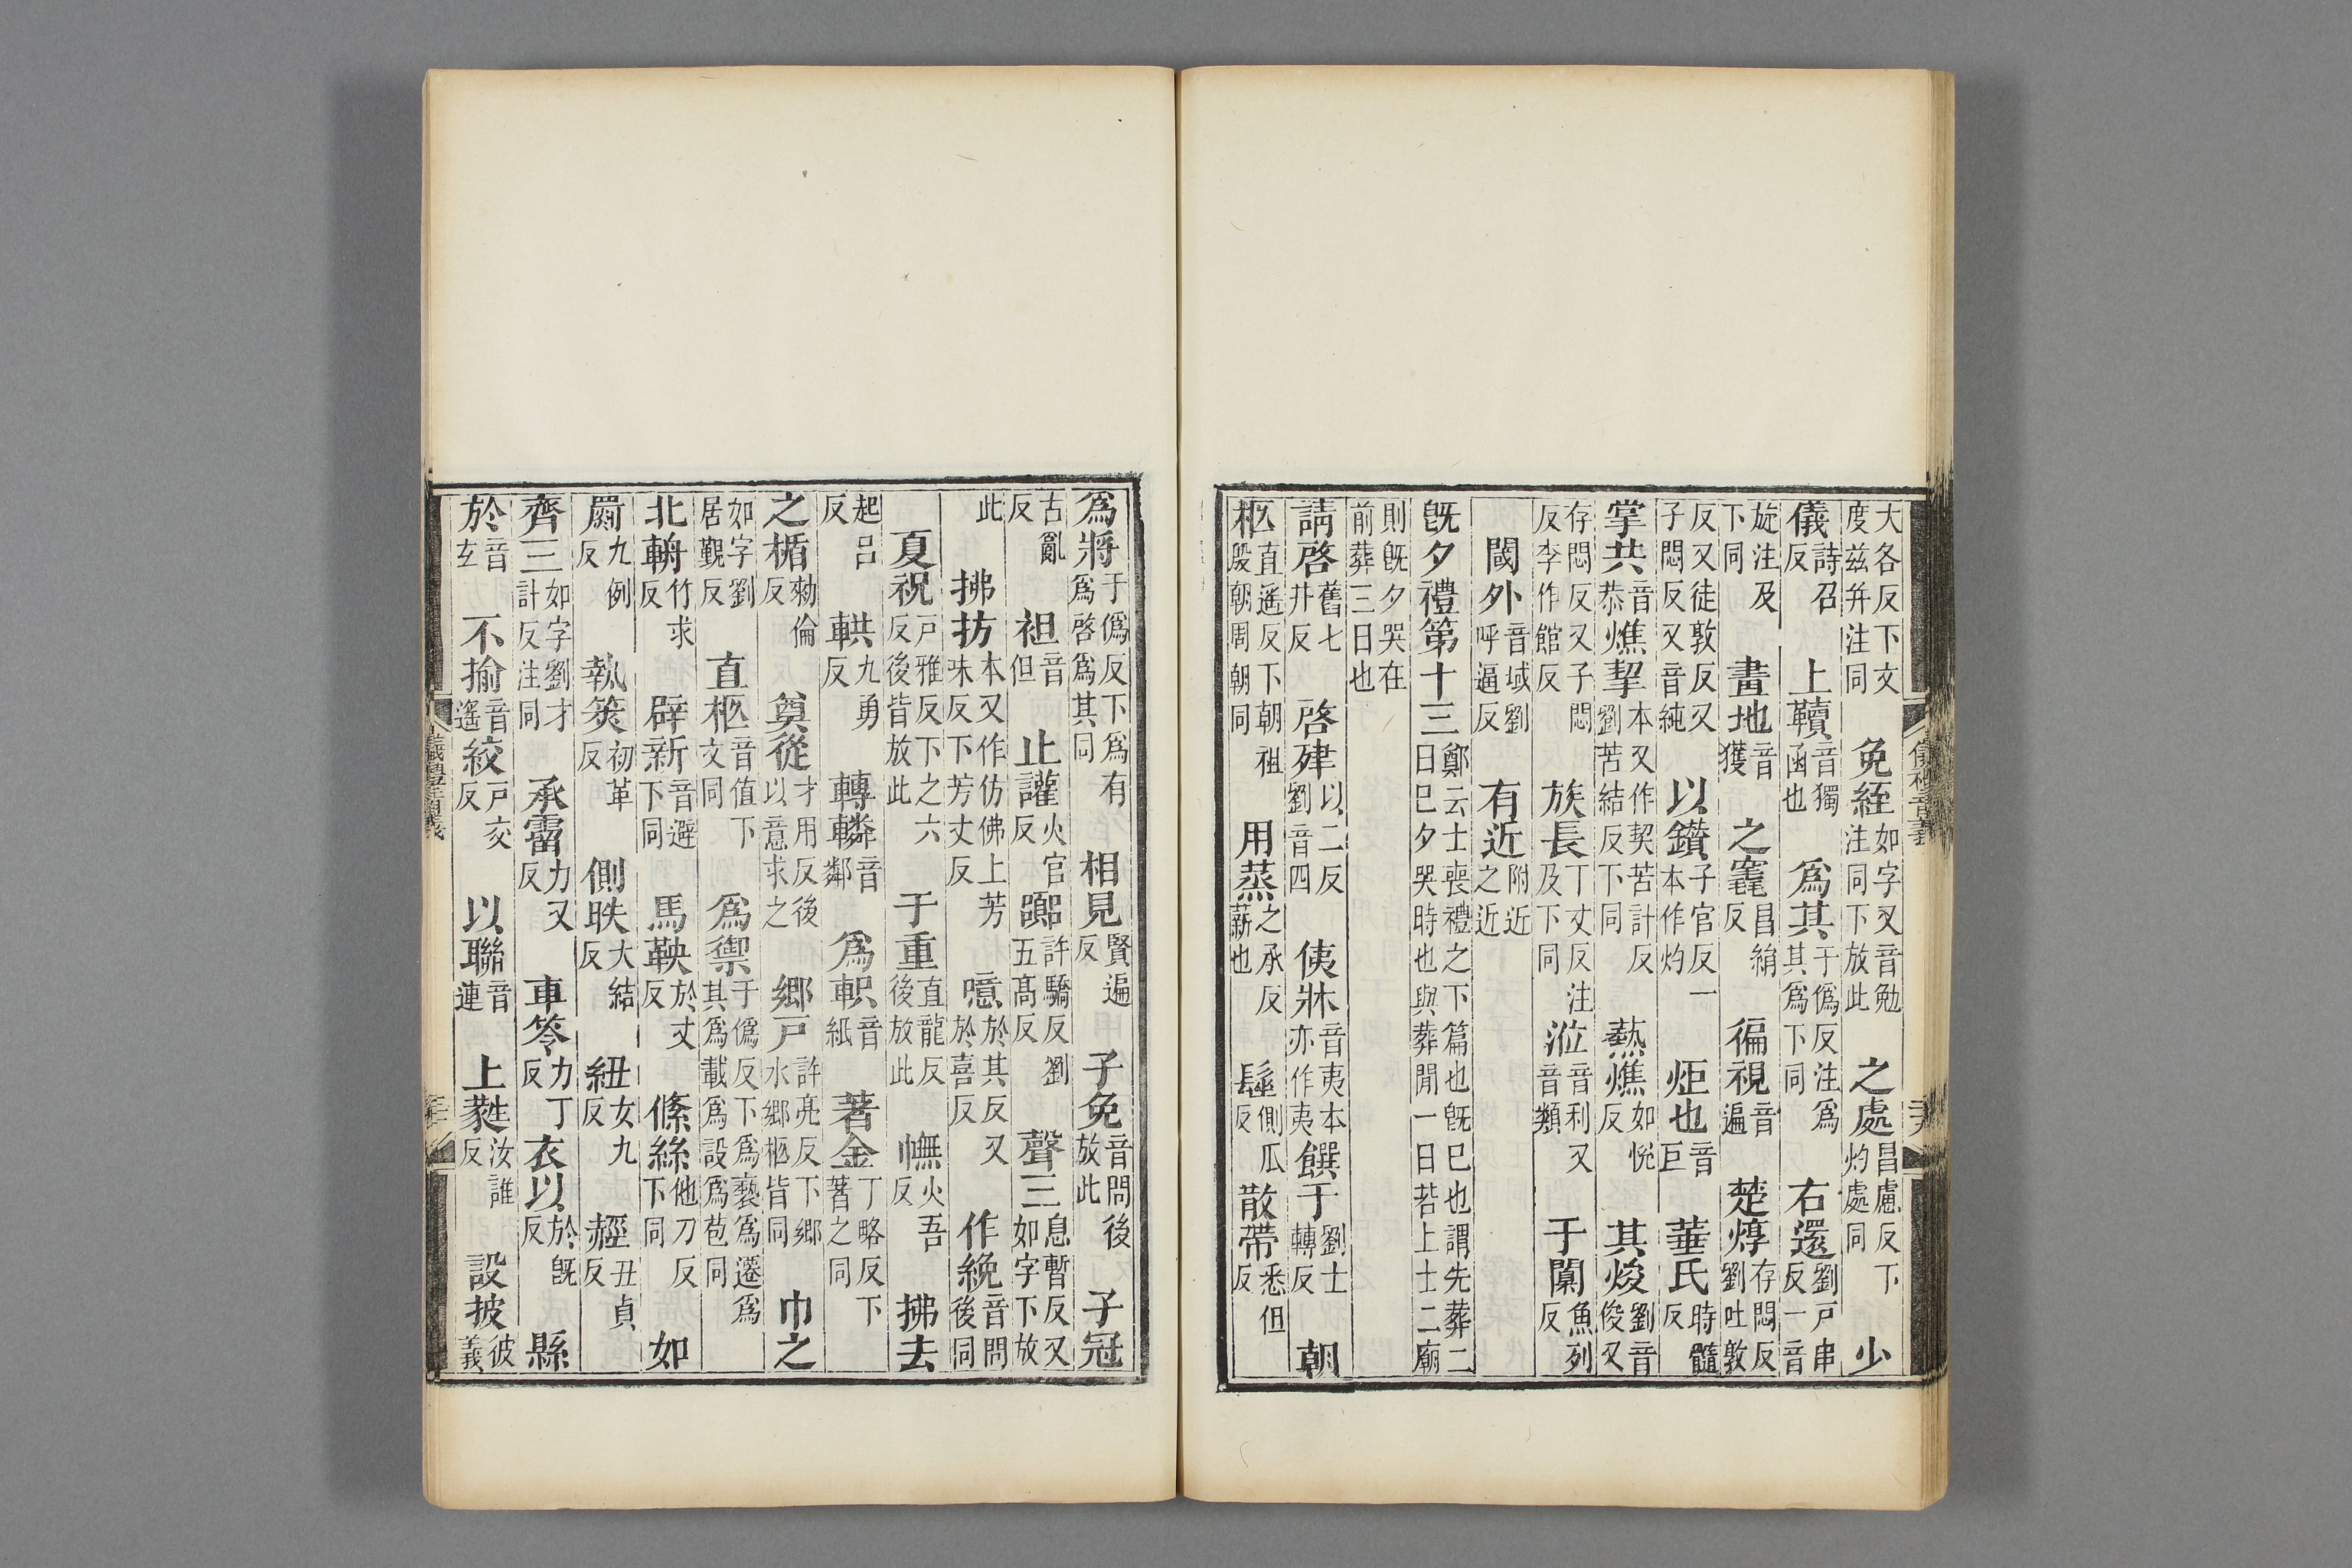 大各反下文度兹幷注同 免絰如字又音勉注同下放此 之處昌慮反下灼處同 少
儀詩召反 上韥音獨函也 爲其于僞反注爲其爲下同 右還劉戸串反一音
旋注及下同 畫地音獲 之竁昌絹反 徧視音遍 楚焞存悶反劉吐敦
反又徒敦反又子悶反又音純 以鑽子官反一本作灼 炬也音巨 華氏時髓反
掌共音恭 燋挈本又作契苦計反劉苦結反下同 熱燋如悅反 其焌劉音俊又
存悶反又子悶反李作館反 族長丁丈反注及下同 涖音利又音類 于闑魚列反
閾外音域劉呼逼反 有近附近之近
旣夕禮第十三鄭云士喪禮之下篇也旣已也謂先葬二日巳夕哭時也與葬閒一日若上士二廟
則旣夕哭在前葬三日也
請啓舊七井反 啓肂以二反劉音四 侇牀音夷本亦作夷 饌于劉士轉反 朝
柩直遙反下朝祖殷朝周朝同 用蒸之承反薪也 髽側瓜反 散帶悉但反
爲將于僞反下爲有爲啓爲其同 相見賢遍反 子免音問後放此 子冠
古亂反 袒音但 止讙火官反 嚻許驕反劉五髙反 聲三息暫反又如字下放
此 拂扐本又作仿佛上芳味反下芳丈反 噫於其反又於喜反 作絻音問後同
夏祝戸雅反下之六反後皆放此 于重直龍反後放此 幠火吾反 拂去
起呂反 軼九勇反 轉轔音鄰 爲軹音紙 著金丁略反下著之同
之楯勑倫反 奠從才用反後以意求之 鄉戸許亮反下鄉水鄉柩皆同 巾之
如字劉居覲反 直柩音值下文同 爲禦于僞反下爲藝爲其爲載爲設爲苞同
北輈竹求反 辟新音避下同 馬鞅於丈反 絛絲他刀反下同 如
罽九例反 執筴初革反 側昳大結反 紐女九反 赬丑貞反
齊三如字劉才計反注同 承霤力又反 車笭力丁反 衣以於旣反 縣
於音玄 不揄音遙 絞戸交反 以聯音連 上蕤汝誰反 設披彼義